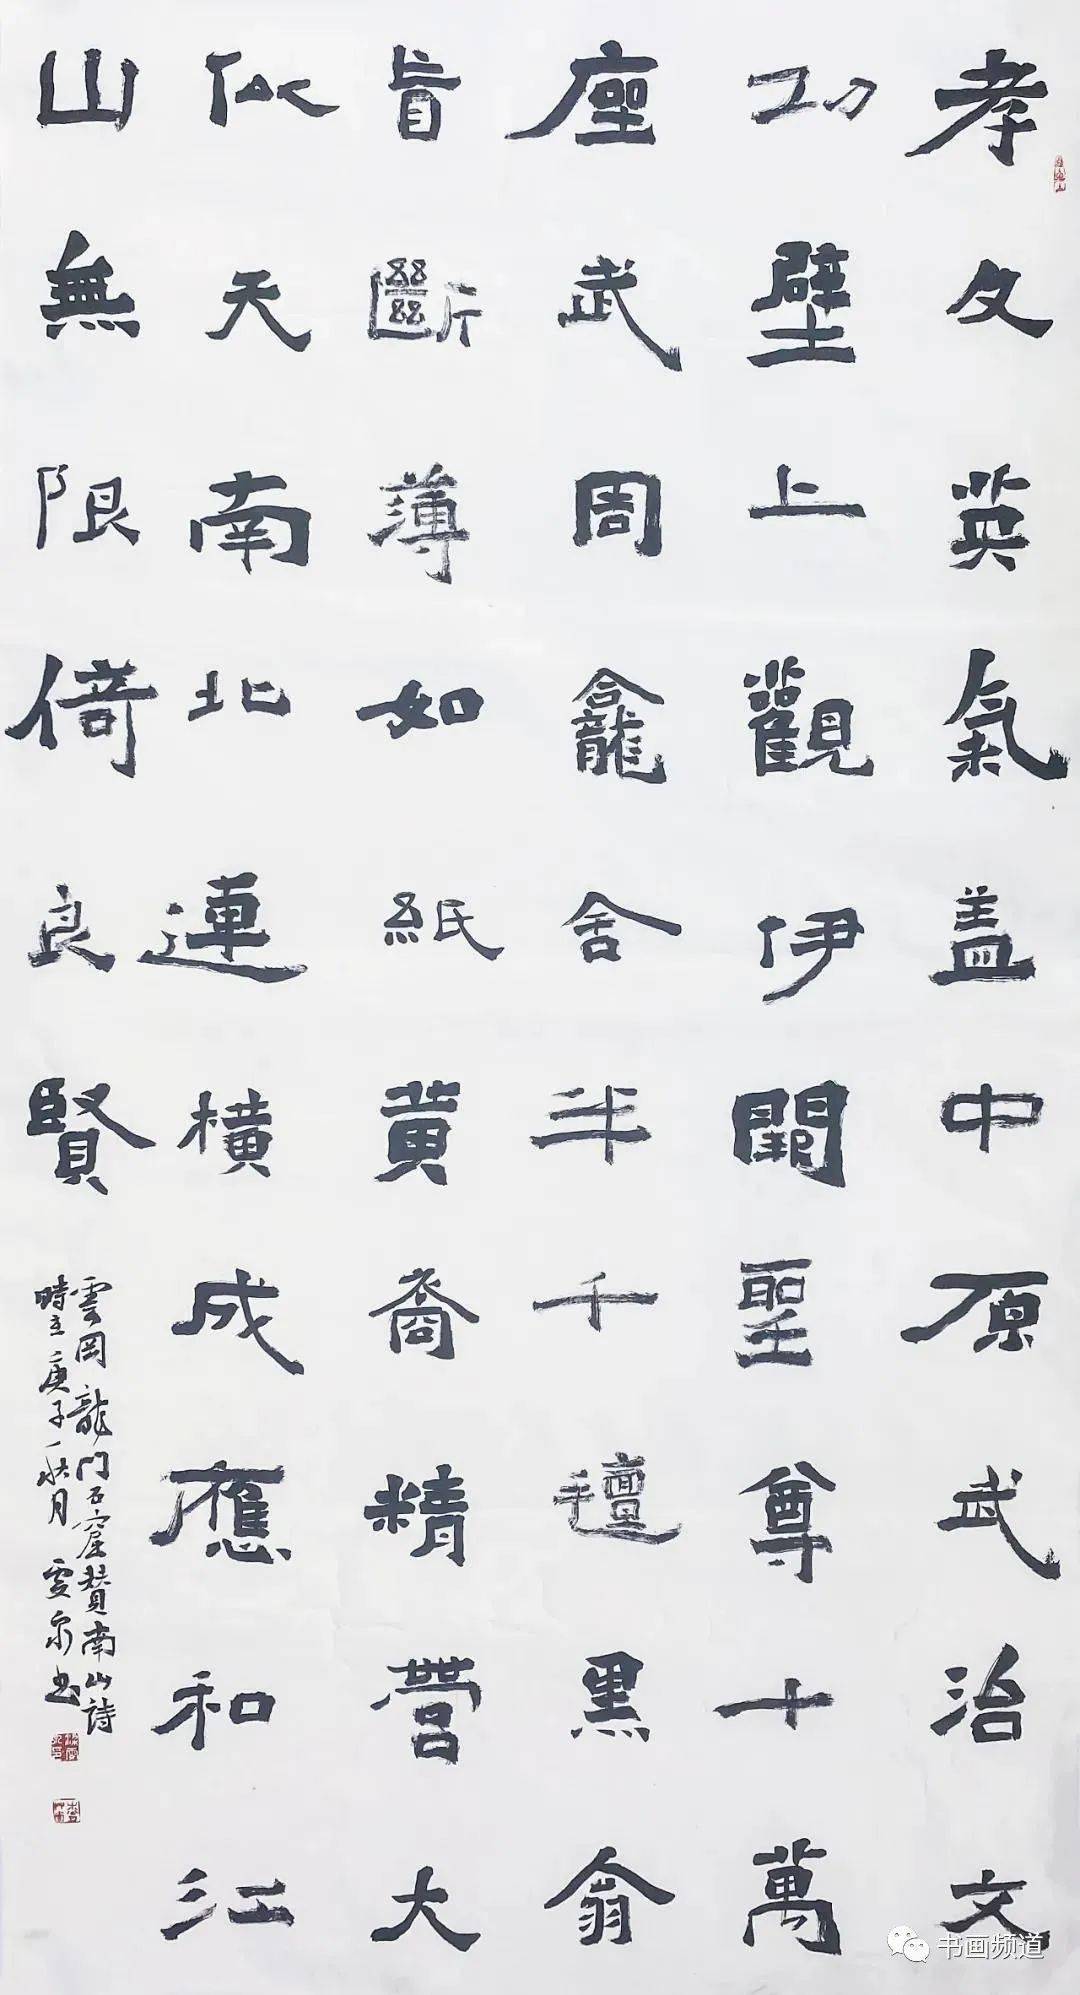 孝文英氣盖中原武治文
功壁上觀伊闕聖尊十萬
座武周龕舍半千氈黑翁
旨斷薄如紙黃裔精營大
似天南北連橫成應和江
山無限倚良賢
雲岡龍門石窟贊南山詩
時在庚子秋月雲泉书
书画频道